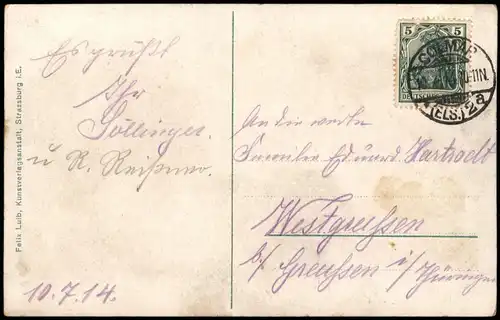 Es grüßt
Ihr
Söllinger
u R.
10.7.14.
Felix Luib, Kunstverlagsanstalt, Strassburg i.E.
5 5
DEUTSCHES
COLMAR
(ELS.) 2a
An die werte
Familie Eduard Hartrodt
Westgreussen
b/ Greussen i/ Thüringen